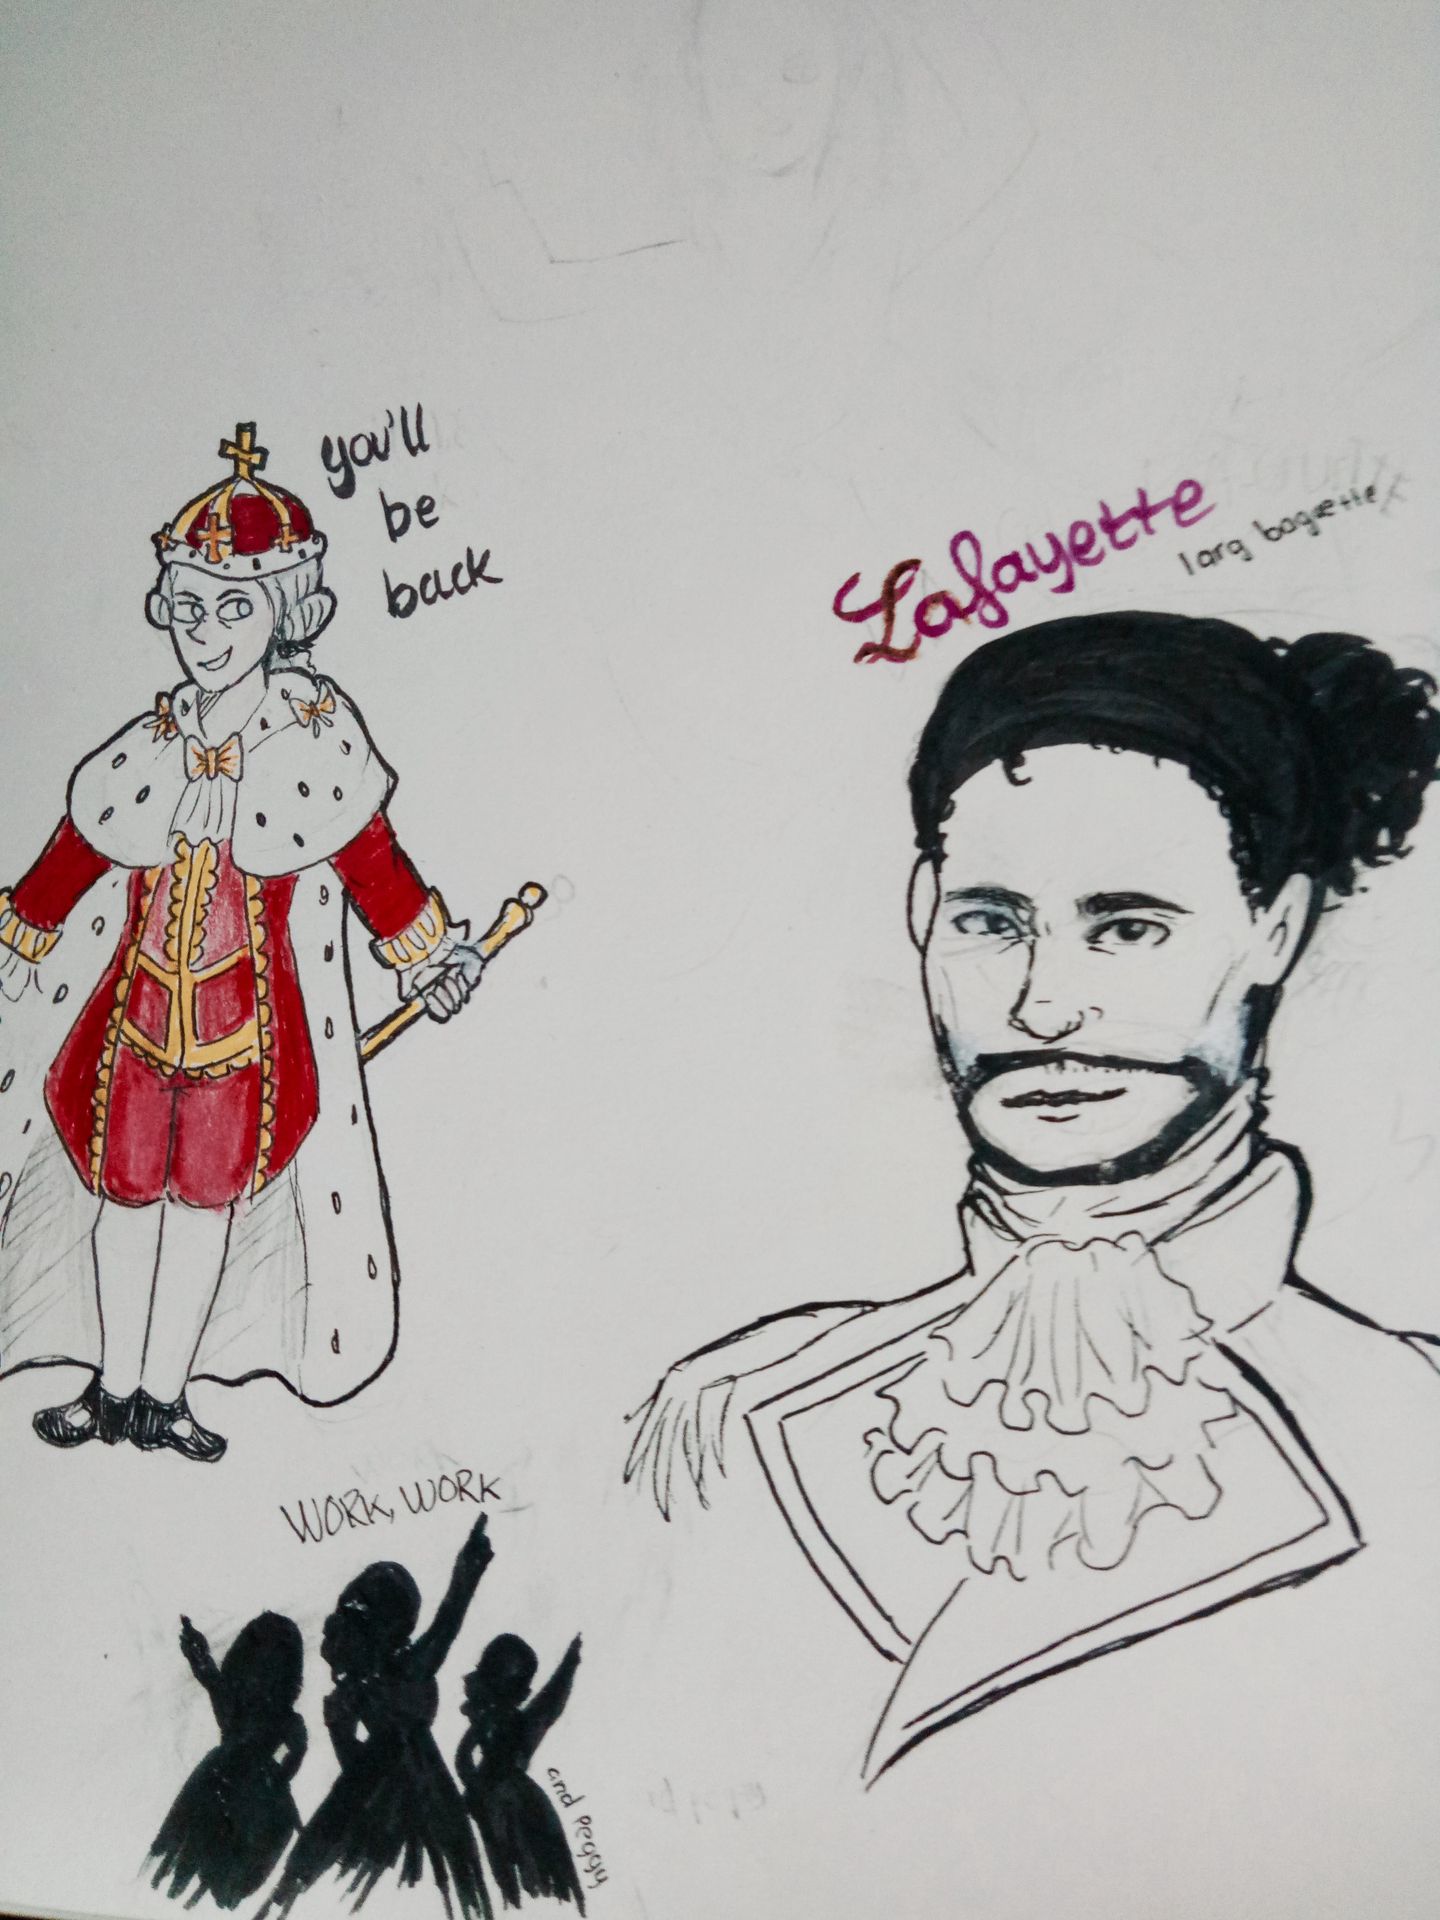 you'll
be
back
Lafayette
larg bagette
WORK, WORK
and Peggy